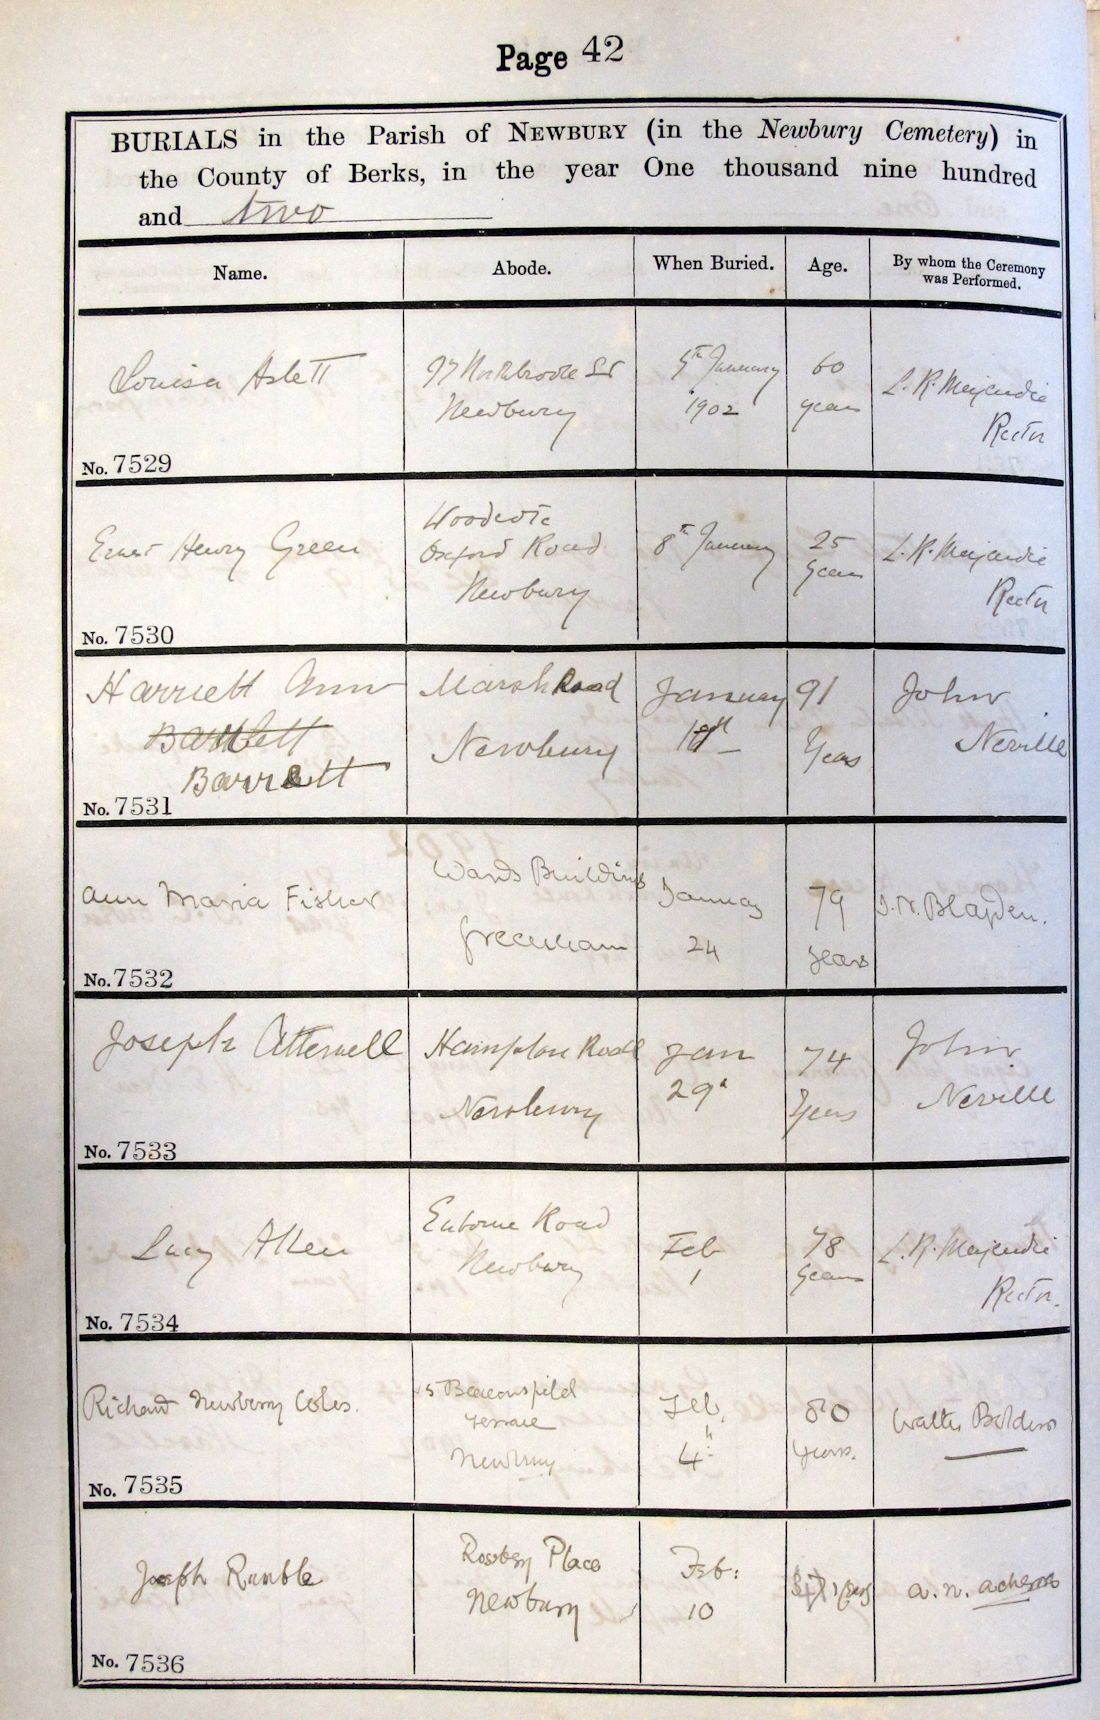 Page 42
BURIALS in the Parish of NEWBURY (in the Newbury Cemetery) in
the County of Berks, in the year One thousand nine hundred
and two
Name. Abode. When Buried. Age. By whom the Ceremony
was Performed.
Louisa Aslett 97 Northbrook St 5th January 60 L. R. Majendie
Newbury 1902 years Rector
No. 7529
Ernest Henry Green Woodcote
Oxford Road 8th January 25 L. R. Majendie
Newbury years Rector
No. 7530
Harriett Ann Marsh Road January 91 John
Bartlett Newbury Years Neville
Barrett
No. 7531
Ann Maria Fisher Wards Buildings January 79
Greenham 24 years
No. 7532
Joseph Atterwell Hampton Road Jan 74 John
Newbury 29th Years Neville
No. 7533
Lucy Allen Enborne Road Feb 78 L. R. Majendie
Newbury 1 years Rector.
No. 7534
Richard Newberry Coles. 5 Beaconsfield Feb. 80 Walter
Terrace
Newbury 4th years.
No. 7535
Joseph Rumble Place Feb: a. n.
Newbury 10
No. 7536